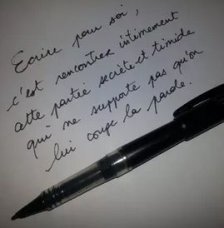 Ecrire pour soi,
c'est rencontrer intimement
cette partie secrète et timide
qui ne supporte pas qu'on
lui coupe la parole.